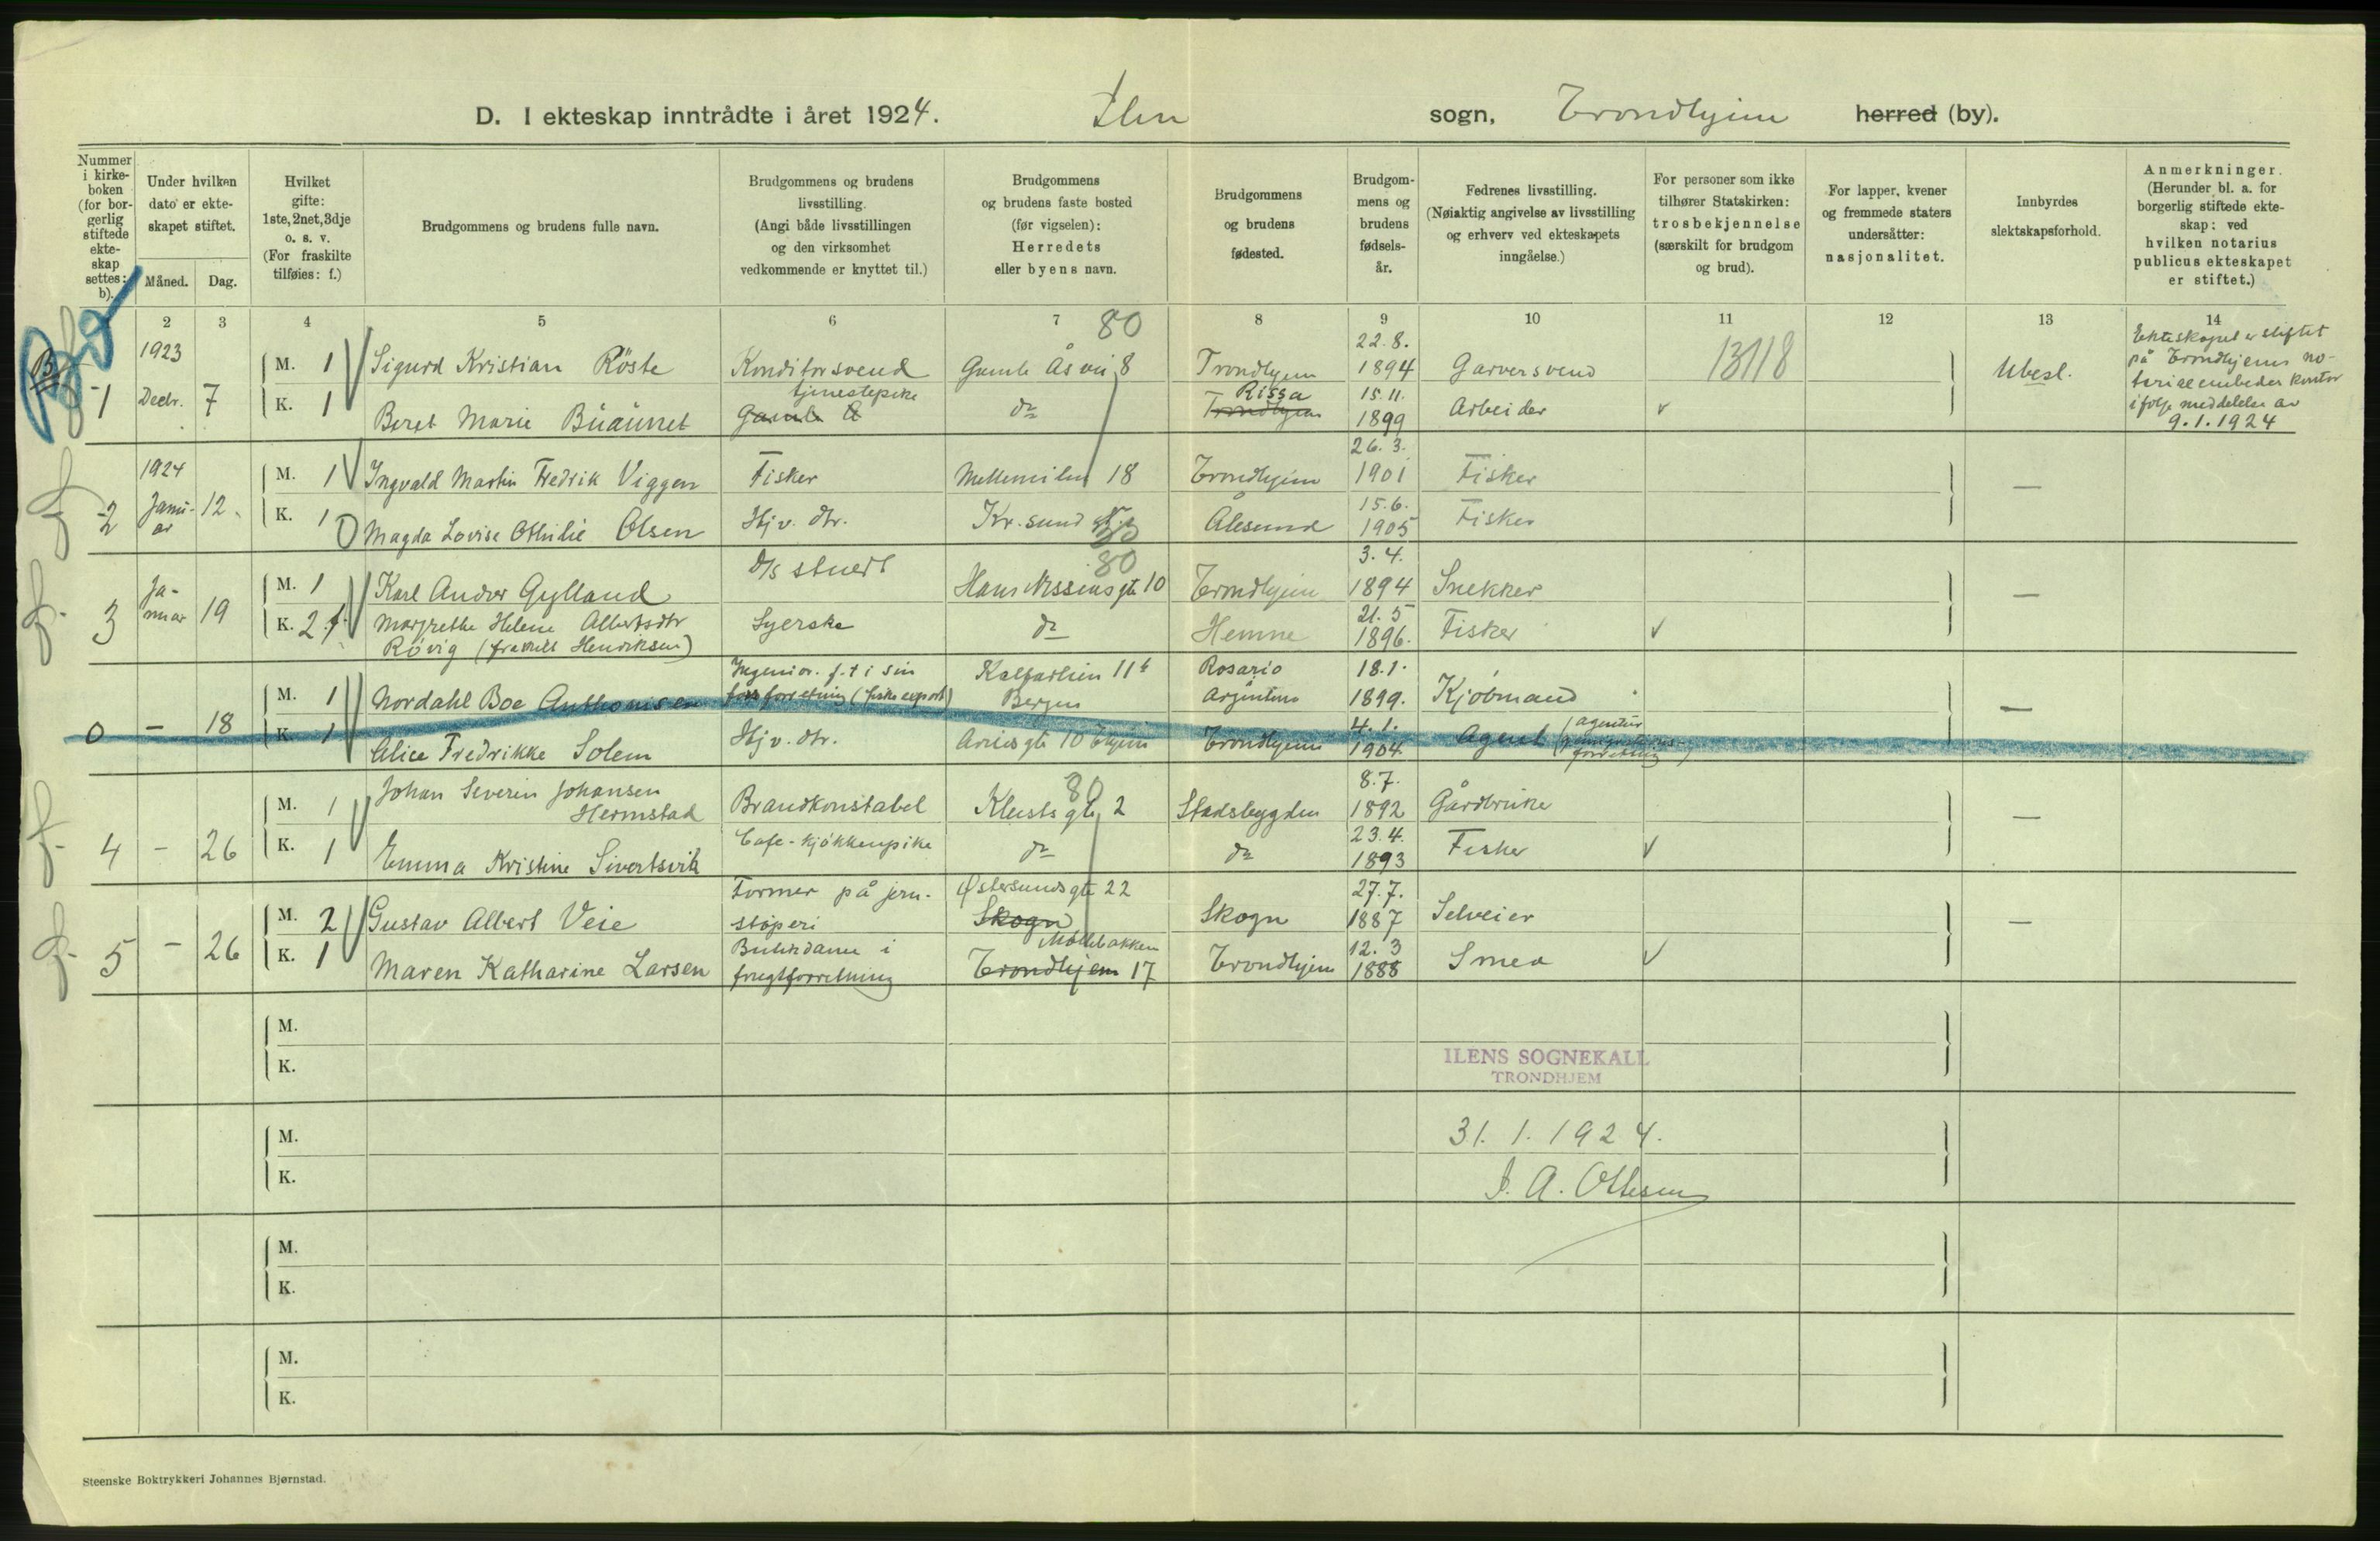 D. I ekteskap inntrådte i året 1924. Ilen sogn, Trondhjem herred (by).
Nummer i kirkeboken (for borgerlig stiftede ekteskap settes: b).
Under hvilken dato er ekteskapet stiftet.
Måned. Dag.
Hvilket gifte: 1ste, 2net, 3dje o. s. v. (For fraskilte tilføies: f.)
Brudgommens og brudens fulle navn.
Brudgommens og brudens livsstilling. (Angi både livsstillingen og den virksomhet vedkommende er knyttet til.)
Brudgommens og brudens faste bosted (før vigselen): Herredets eller byens navn.
Brudgommens og brudens fødested.
Brudgommens og brudens fødselsår.
Fedrenes livsstilling. (Nøiaktig angivelse av livsstilling og erhverv ved ekteskapets inngåelse.)
For personer som ikke tilhører Statskirken: trosbekjennelse (særskilt for brudgom og brud).
For lapper, kvener og fremmede staters undersåtter: nasjonalitet.
Innbyrdes slektskapsforhold.
Anmerkninger. (Herunder bl. a. for borgerlig stiftede ekteskap: ved hvilken notarius publicus ekteskapet er stiftet.)
2 3 4 5 6 7 8 9 10 11 12 13 14
80
B 1 1923 Decbr. 7
M. 1 Sigurd Kristian Röste Konditorsvend Gamle Åsvei 8 Trondhjem 22.8. 1894 Garversvend 13118 Ubesl.
K. 1 Beret Marie Buaunet tjenestepike Gamle Å do Rissa Trondhjem 15.11. 1899 Arbeider v
Ekteskapet er stiftet
på Trondhjems no-
tarialembedes kontor
ifølge meddelelse av
9.1.1924
2 1924 Januar 12.
M. 1 Ingvald Martin Fredrik Viggen Fisker Mellemilen 18 Trondhjem 26.3. 1901 Fisker —
K. 1 Magda Lovise Othilie Olsen Hjv. dtr. Kr.sund Ålesund 15.6. 1905 Fisker
80
3 Januar 19
M. 1 Karl Andor Gylland D/s stuert Hans Nissens gt 10 Trondhjem 3.4. 1894 Snekker —
K. 2 f. Margrethe Helene Albertsdtr Syerske do Hemne 21.5 1896. Fisker v
Rövig (fraskilt Henriksen)
0 — 18
M. 1 Nordahl Boe Anthonisen Ingeniør. f.t i sin fars forretning (fiske export) Kalfarlien 11b Bergen Rosario Argentina 18.1. 1899. Kjöbmand —
K. 1 Alice Fredrikke Solem Hjv. dtr. Arnes gt 10 Thjem Trondhjem 4.1. 1904 Agent (agentur forretning)
80
4 — 26
M. 1 Johan Severin Johansen Hermstad Brandkonstabel Kleists gt. 2 Stadsbygden 8.7. 1892 Gårdbruker —
K. 1 Emma Kristine Sivertsvik Cafe-kjökkenpike do do 23.4. 1893 Fisker v
5 — 26
M. 2 Gustav Albert Veie Former på jern- støperi Østersunds gt 22 Skogn Skogn 27.7. 1887 Selveier —
K. 1 Maren Katharine Larsen Butikdame i frugtforretning Møllebakken Trondhjem 17 Trondhjem 12.3 1888 Smed v
M.
K.
ILENS SOGNEKALL
TRONDHJEM
M.
K.
31. 1. 1924.
J. A. Ottesen
M.
K.
M.
K.
Steenske Boktrykkeri Johannes Bjørnstad.